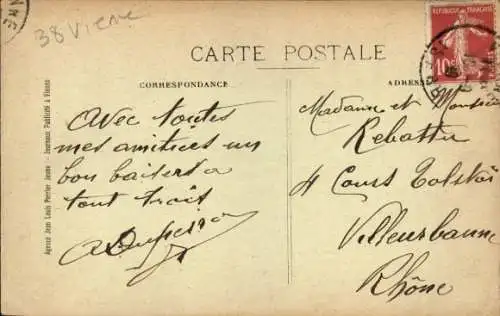 38 Vienne
CARTE POSTALE
CORRESPONDANCE
ADRESSE
REPUBLIQUE FRANÇAISE
10c
Agence Jean Louis Perrier Jeune - Journaux Publicité à Vienne
Avec toutes
mes amitiées un
bon baisers a
tout trois
Madame et Monsieur
Rebattu
4 Cours Tolstoï
Villeurbanne
Rhône